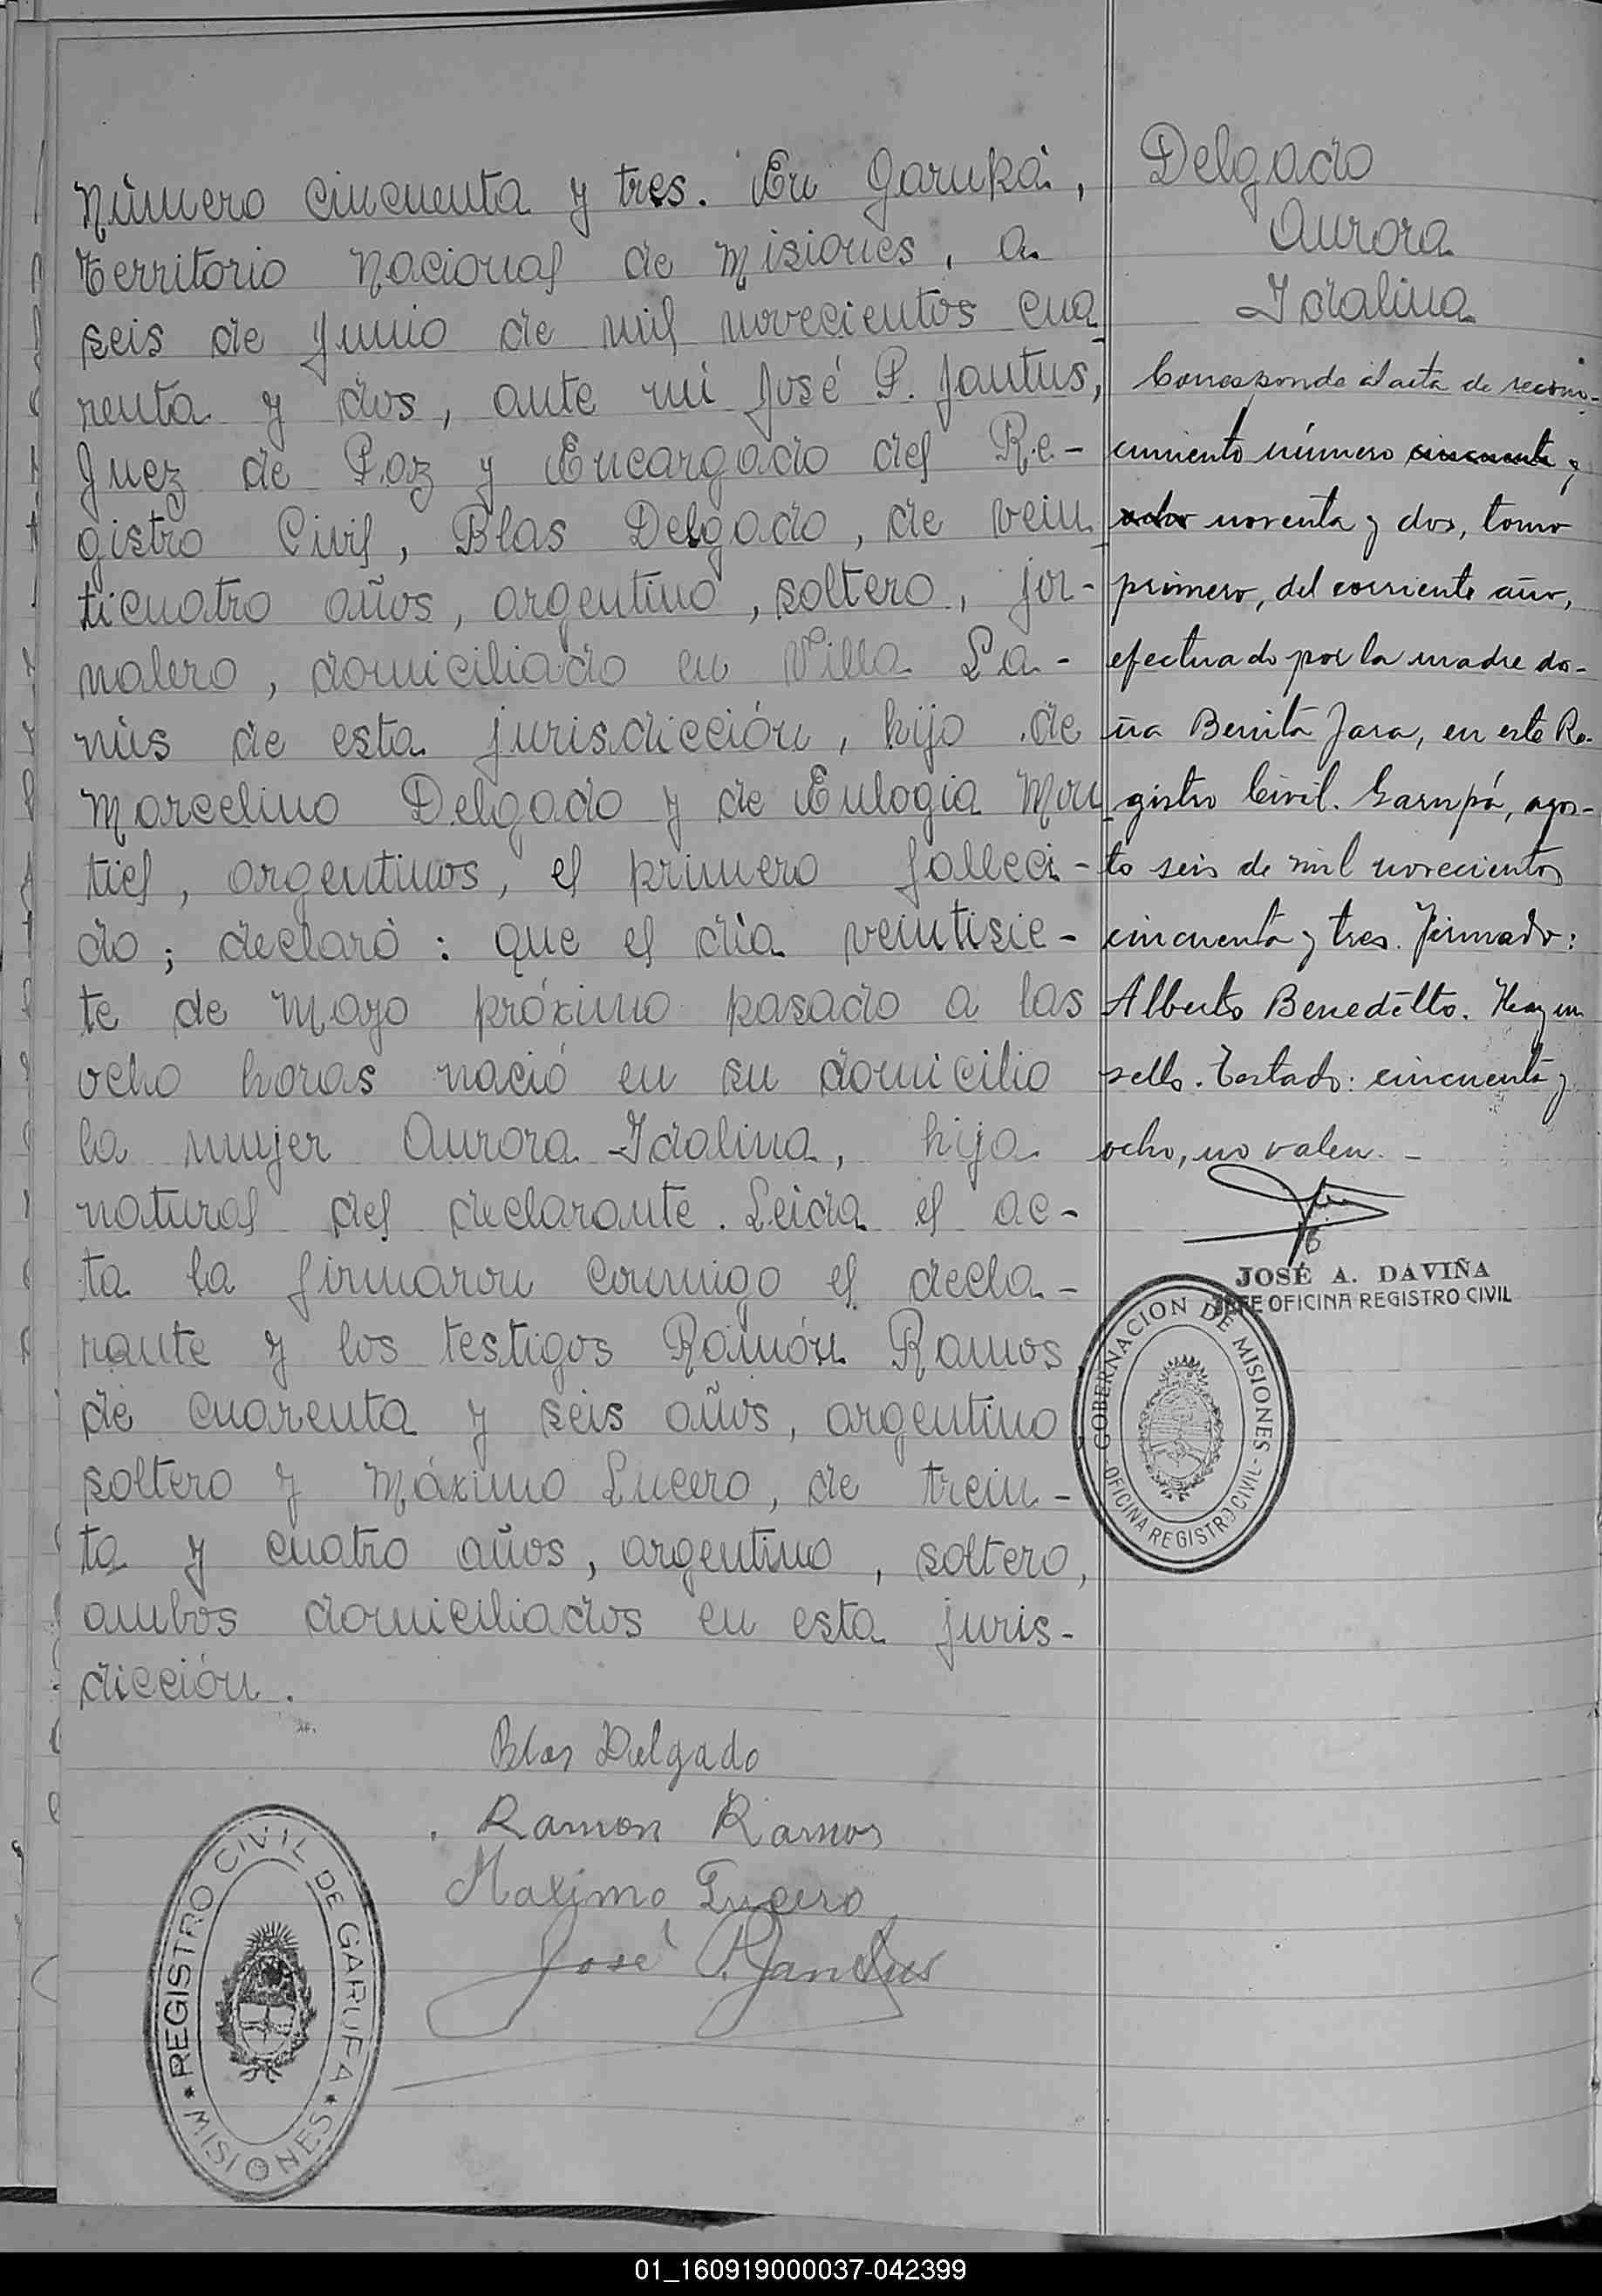 Número cincuenta y tres. En Garupá,
Territorio Nacional de Misiones, a
seis de Junio de mil novecientos cua
renta y dos, ante mi José P. Jantus,
Juez de Paz y Encargado del Re-
gistro Civil, Blas Delgado, de vein
ticuatro años, argentino, soltero, jor-
nalero, domiciliado en Villa La-
nús de esta jurisdicción, hijo de
Marcelino Delgado y de Eulogia Mon
tiel, argentinos, el primero falleci-
do; declaró: que el día veintisie-
te de Mayo próximo pasado a las
ocho horas nació en su domicilio
la mujer Aurora Idalina, hija
natural del declarante. Leida el ac-
ta la firmaron conmigo el decla-
rante y los testigos Ramón Ramos
de cuarenta y seis años, argentino
soltero y Máximo Lucero, de trein-
ta y cuatro años, argentino, soltero,
ambos domiciliados en esta juris-
dicción.
Blas Delgado
Ramon Ramos
Maximo Lucero
José P. Jantus
REGISTRO CIVIL DE GARUPA
* MISIONES *
Delgado
Aurora
Idalina
Corresponde al acta de recono-
cimiento número cincuenta y
ocho noventa y dos, tomo
primero, del corriente año,
efectuado por la madre do-
ña Benita Jara, en este Re-
gistro Civil. Garupá, agos-
to seis de mil novecientos
cincuenta y tres. Firmado:
Alberto Benedetto. Hay un
sello. Testado: cincuenta y
ocho, no valen. -
JOSÉ A. DAVIÑA
JEFE OFICINA REGISTRO CIVIL
GOBERNACION DE MISIONES
- OFICINA REGISTRO CIVIL -
01_160919000037-042399